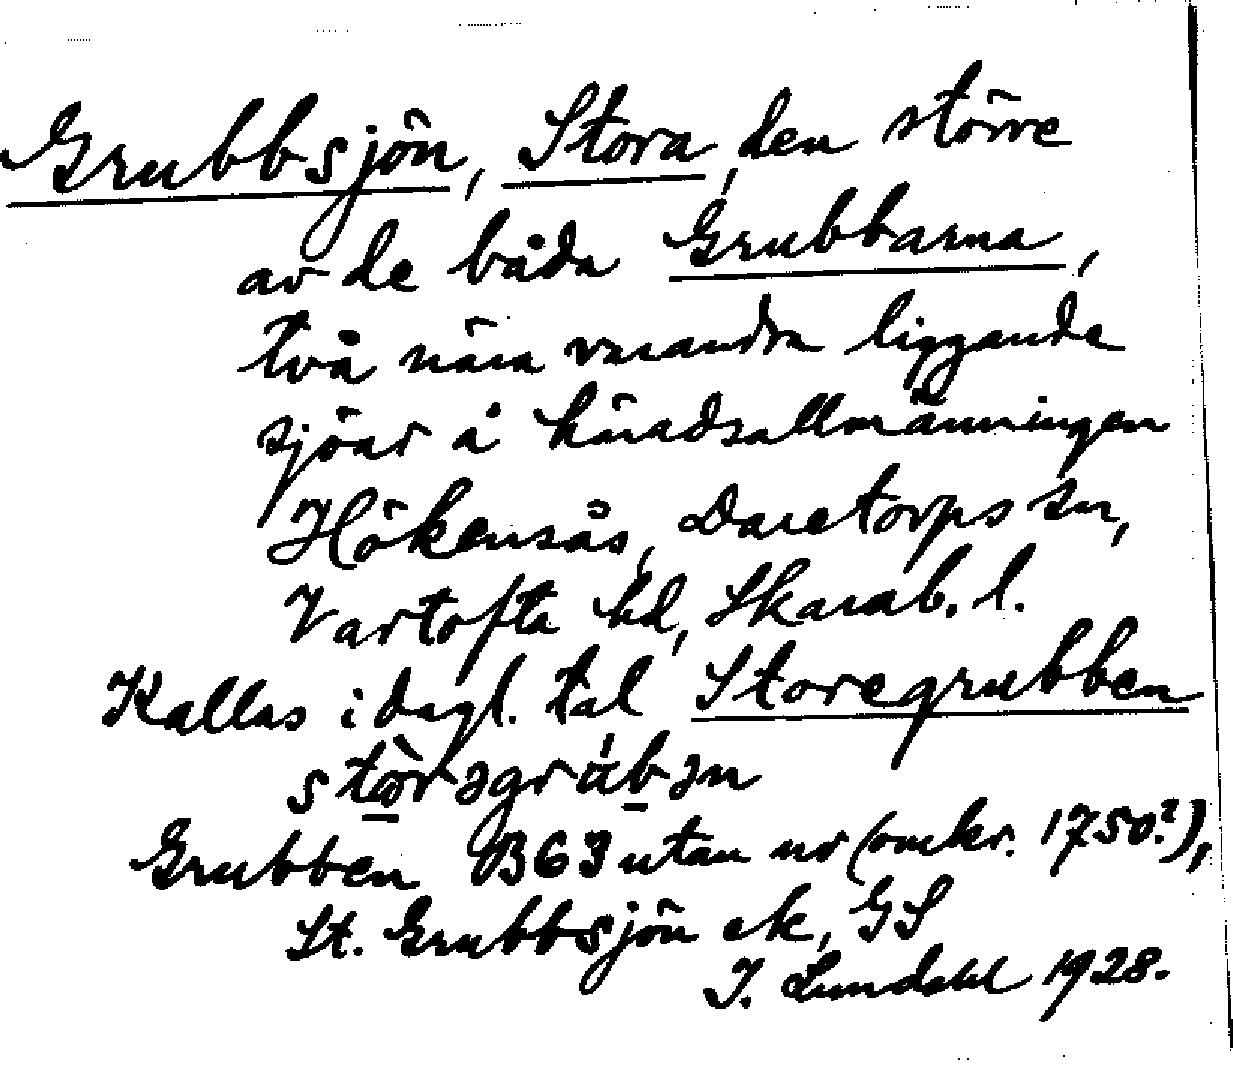 Grubbsjön, Stora, den större
av de båda Grubbarna,
två nära varandra liggande
sjöar å häradsallmänningen
Hökensås, Daretorps sn,
Vartofta hd, Skarab. l.
Kallas i dagl. tal Storegrubben
stò̤rəgrúb̠ən
Grubben B63 utan nr (omkr. 1750?),
St. Grubbsjön ek, GS
I. Lundahl 1928.